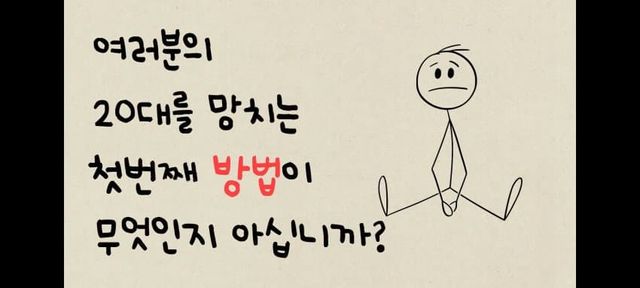 여러분의
20대를 망치는
첫번째 방법이
무엇인지 아십니까?